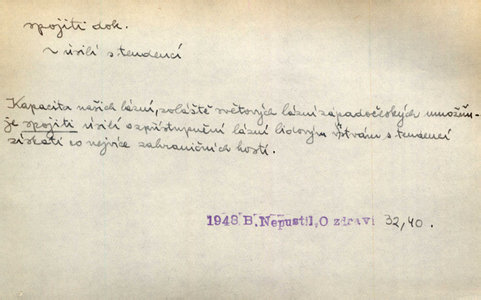 spojiti dok.
~ úsilí s tendencí
Kapacita našich lázní, zvláště světových lázní západočeských umožňu-
je spojiti úsilí o zpřístupnění lázní lidovým vrstvám s tendencí
získati co nejvíce zahraničních hostí.
1948 B. Nepustil, O zdraví 32,40.